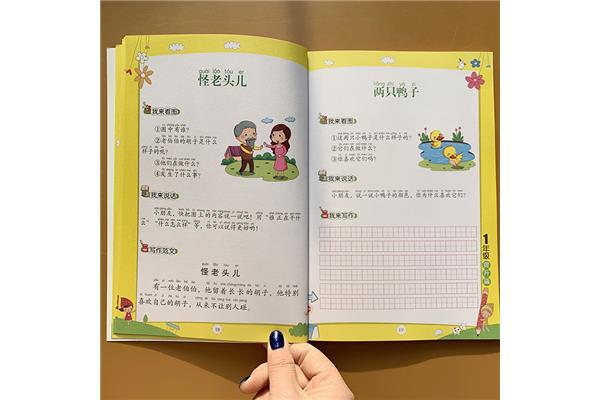 guài lǎo tóu er
怪老头儿
我来看图
①图中有谁?
②老伯伯的胡子是什么
样子的呢?
③他们在做什么?
④发生了什么事?
我来说话
小朋友,快把图上的内容说一说吧!用“谁正在干什
么”“什么怎么样”等,你可以说得更好哟!
写作范文
guài lǎo tóu er
怪老头儿
有一位老伯伯,他留着长长的胡子,他特别
喜欢自己的胡子,从来不让别人碰。
18
liǎng zhī yā zi
两只鸭子
我来看图
①这两只小鸭子是什么样子的?
②它们在做什么?
③你喜欢它们吗?
我来说话
小朋友,说一说小鸭子的颜色,你为什么喜欢它们?
我来写作
1年级
提升篇
19